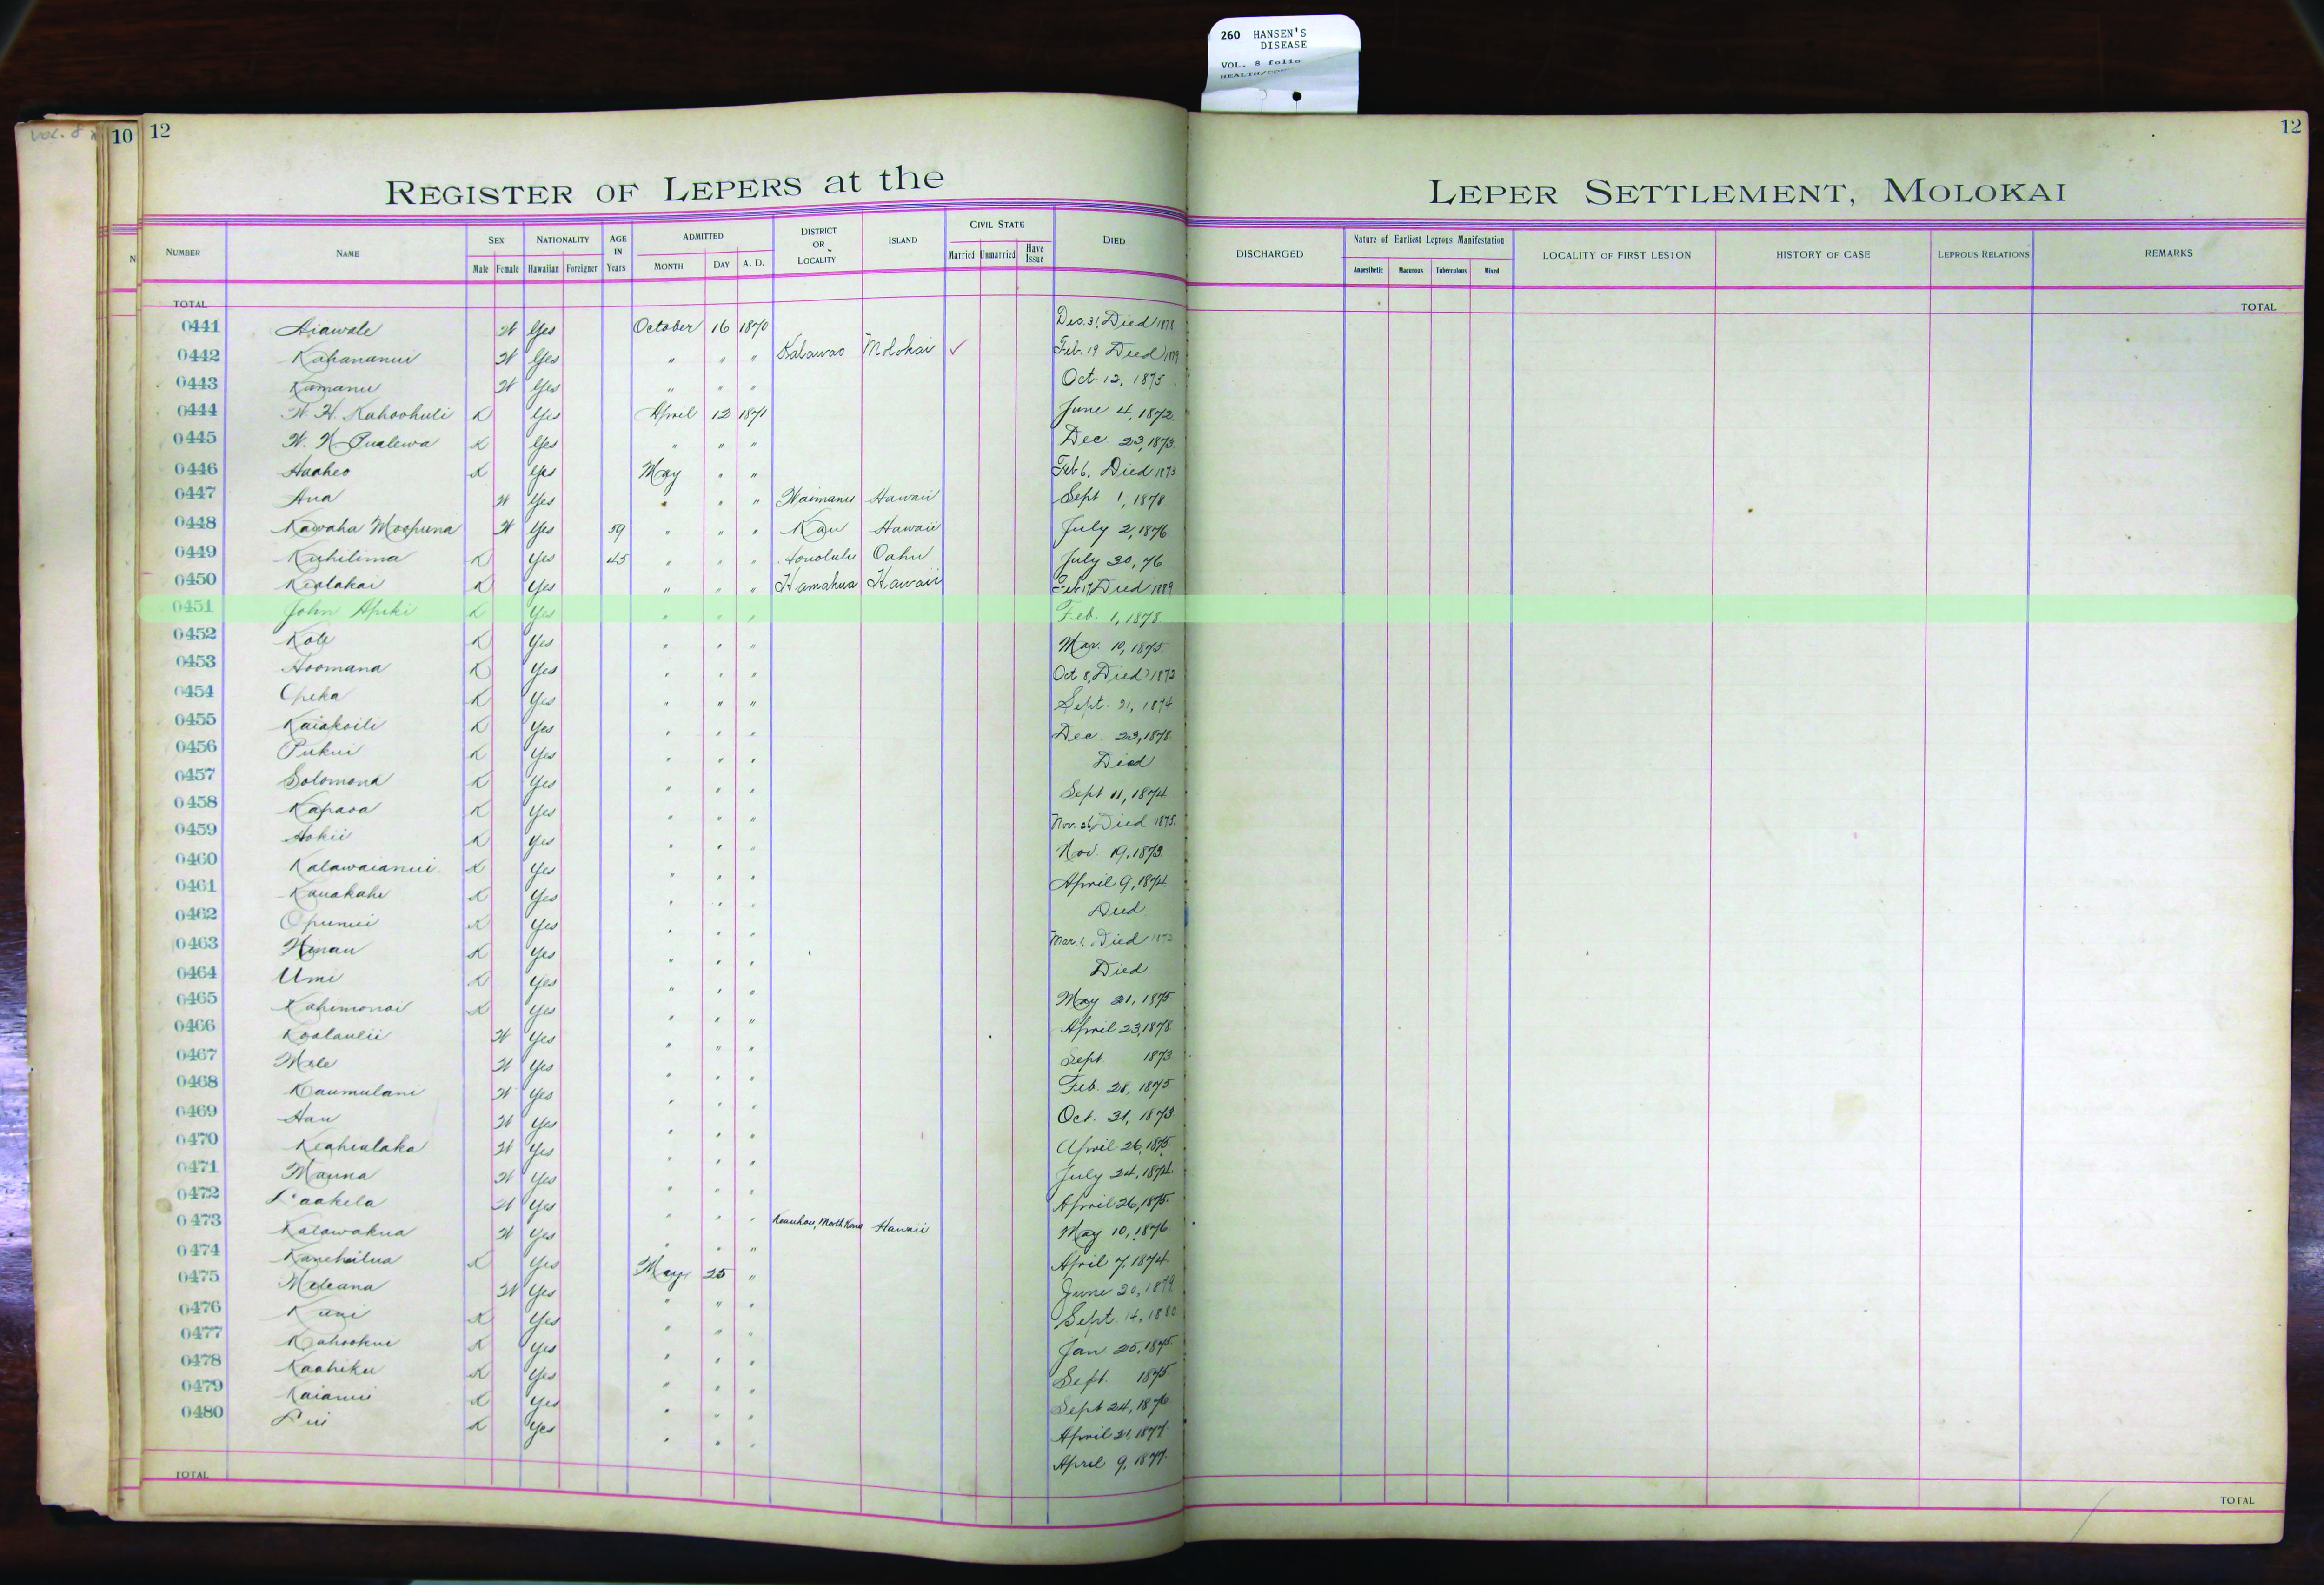 260 HANSEN'S
DISEASE
VOL. 8 folio
VOL. 8
10
12
12
REGISTER OF LEPERS at the LEPER SETTLEMENT, MOLOKAI
NUMBER NAME SEX NATIONALITY AGE IN Years ADMITTED DISTRICT OR LOCALITY ISLAND CIVIL STATE DIED DISCHARGED Nature of Earliest Leprous Manifestation LOCALITY OF FIRST LESION HISTORY OF CASE LEPROUS RELATIONS REMARKS
Male Female Hawaiian Foreigner MONTH DAY A. D. Married Unmarried Have Issue Anaesthetic Macurous Tuberculous Mixed
TOTAL TOTAL
0441 Aiawale W Yes October 16 1870 Dec. 31, Died 1878
0442 Kahananui W Yes " " " Kalawao Molokai ✓ Feb. 19 Died
0443 Kamanu W Yes " " " Oct. 12, 1875
0444 W. H. Kahoohuli K Yes April 12 1871 June 4, 1872
0445 W. N. Pualewa K Yes " " " Dec. 23, 1873
0446 Haaheo K Yes May " " Feb 6, Died 1873
0447 Ana W Yes " " " Waimanu Hawaii Sept 1, 1878
0448 Kawaha Moopuna W Yes 59 " " " Kau Hawaii July 2, 1876
0449 Kuhilima K Yes 45 " " " Honolulu Oahu July 30, 76
0450 Kealakai K Yes " " " Hamakua Hawaii Feb 17, Died 1889
0451 John Apiki K Yes " " " Feb. 1, 1878
0452 Kole K Yes " " " Mar. 10, 1875
0453 Hoomana K Yes " " " Oct 8, Died 1873
0454 Opeka K Yes " " " Sept. 21, 1874
0455 Kaiakoili K Yes " " " Dec. 23, 1878
0456 Pukui K Yes " " " Died
0457 Solomona K Yes " " " Sept 11, 1874
0458 Kapaoa K Yes " " " Nov. 26, Died 1875
0459 Hokii K Yes " " " Nov. 19, 1873
0460 Kalawaianui K Yes " " " April 9, 1874
0461 Kauakahi K Yes " " " Died
0462 Opunui K Yes " " " Mar. 1, Died
0463 Hinau K Yes " " " Died
0464 Umi K Yes " " " May 21, 1875
0465 Kahimonoi K Yes " " " April 23, 1878
0466 Koolaulii W Yes " " " Sept 1873
0467 Mele W Yes " " " Feb. 28, 1875
0468 Kaumulani W Yes " " " Oct. 31, 1873
0469 Hau W Yes " " " April 26, 1875
0470 Keahialaka W Yes " " " July 24, 1874
0471 Mauna W Yes " " " April 26, 1875
0472 Laakela W Yes " " " May 10, 1876
0473 Kalawakua W Yes " " " Keauhou, North Kona Hawaii April 7, 1874
0474 Kanehailua K Yes May 25 " June 20, 1879
0475 Meleana W Yes " " " Sept. 14, 1880
0476 Kuni K Yes " " " Jan. 25, 1875
0477 Kahookui K Yes " " " Sept. 1875
0478 Kaahiku K Yes " " " Sept 24, 1876
0479 Kaianui K Yes " " " April 21, 1877
0480 Lui K Yes " " " April 9, 1877
TOTAL TOTAL